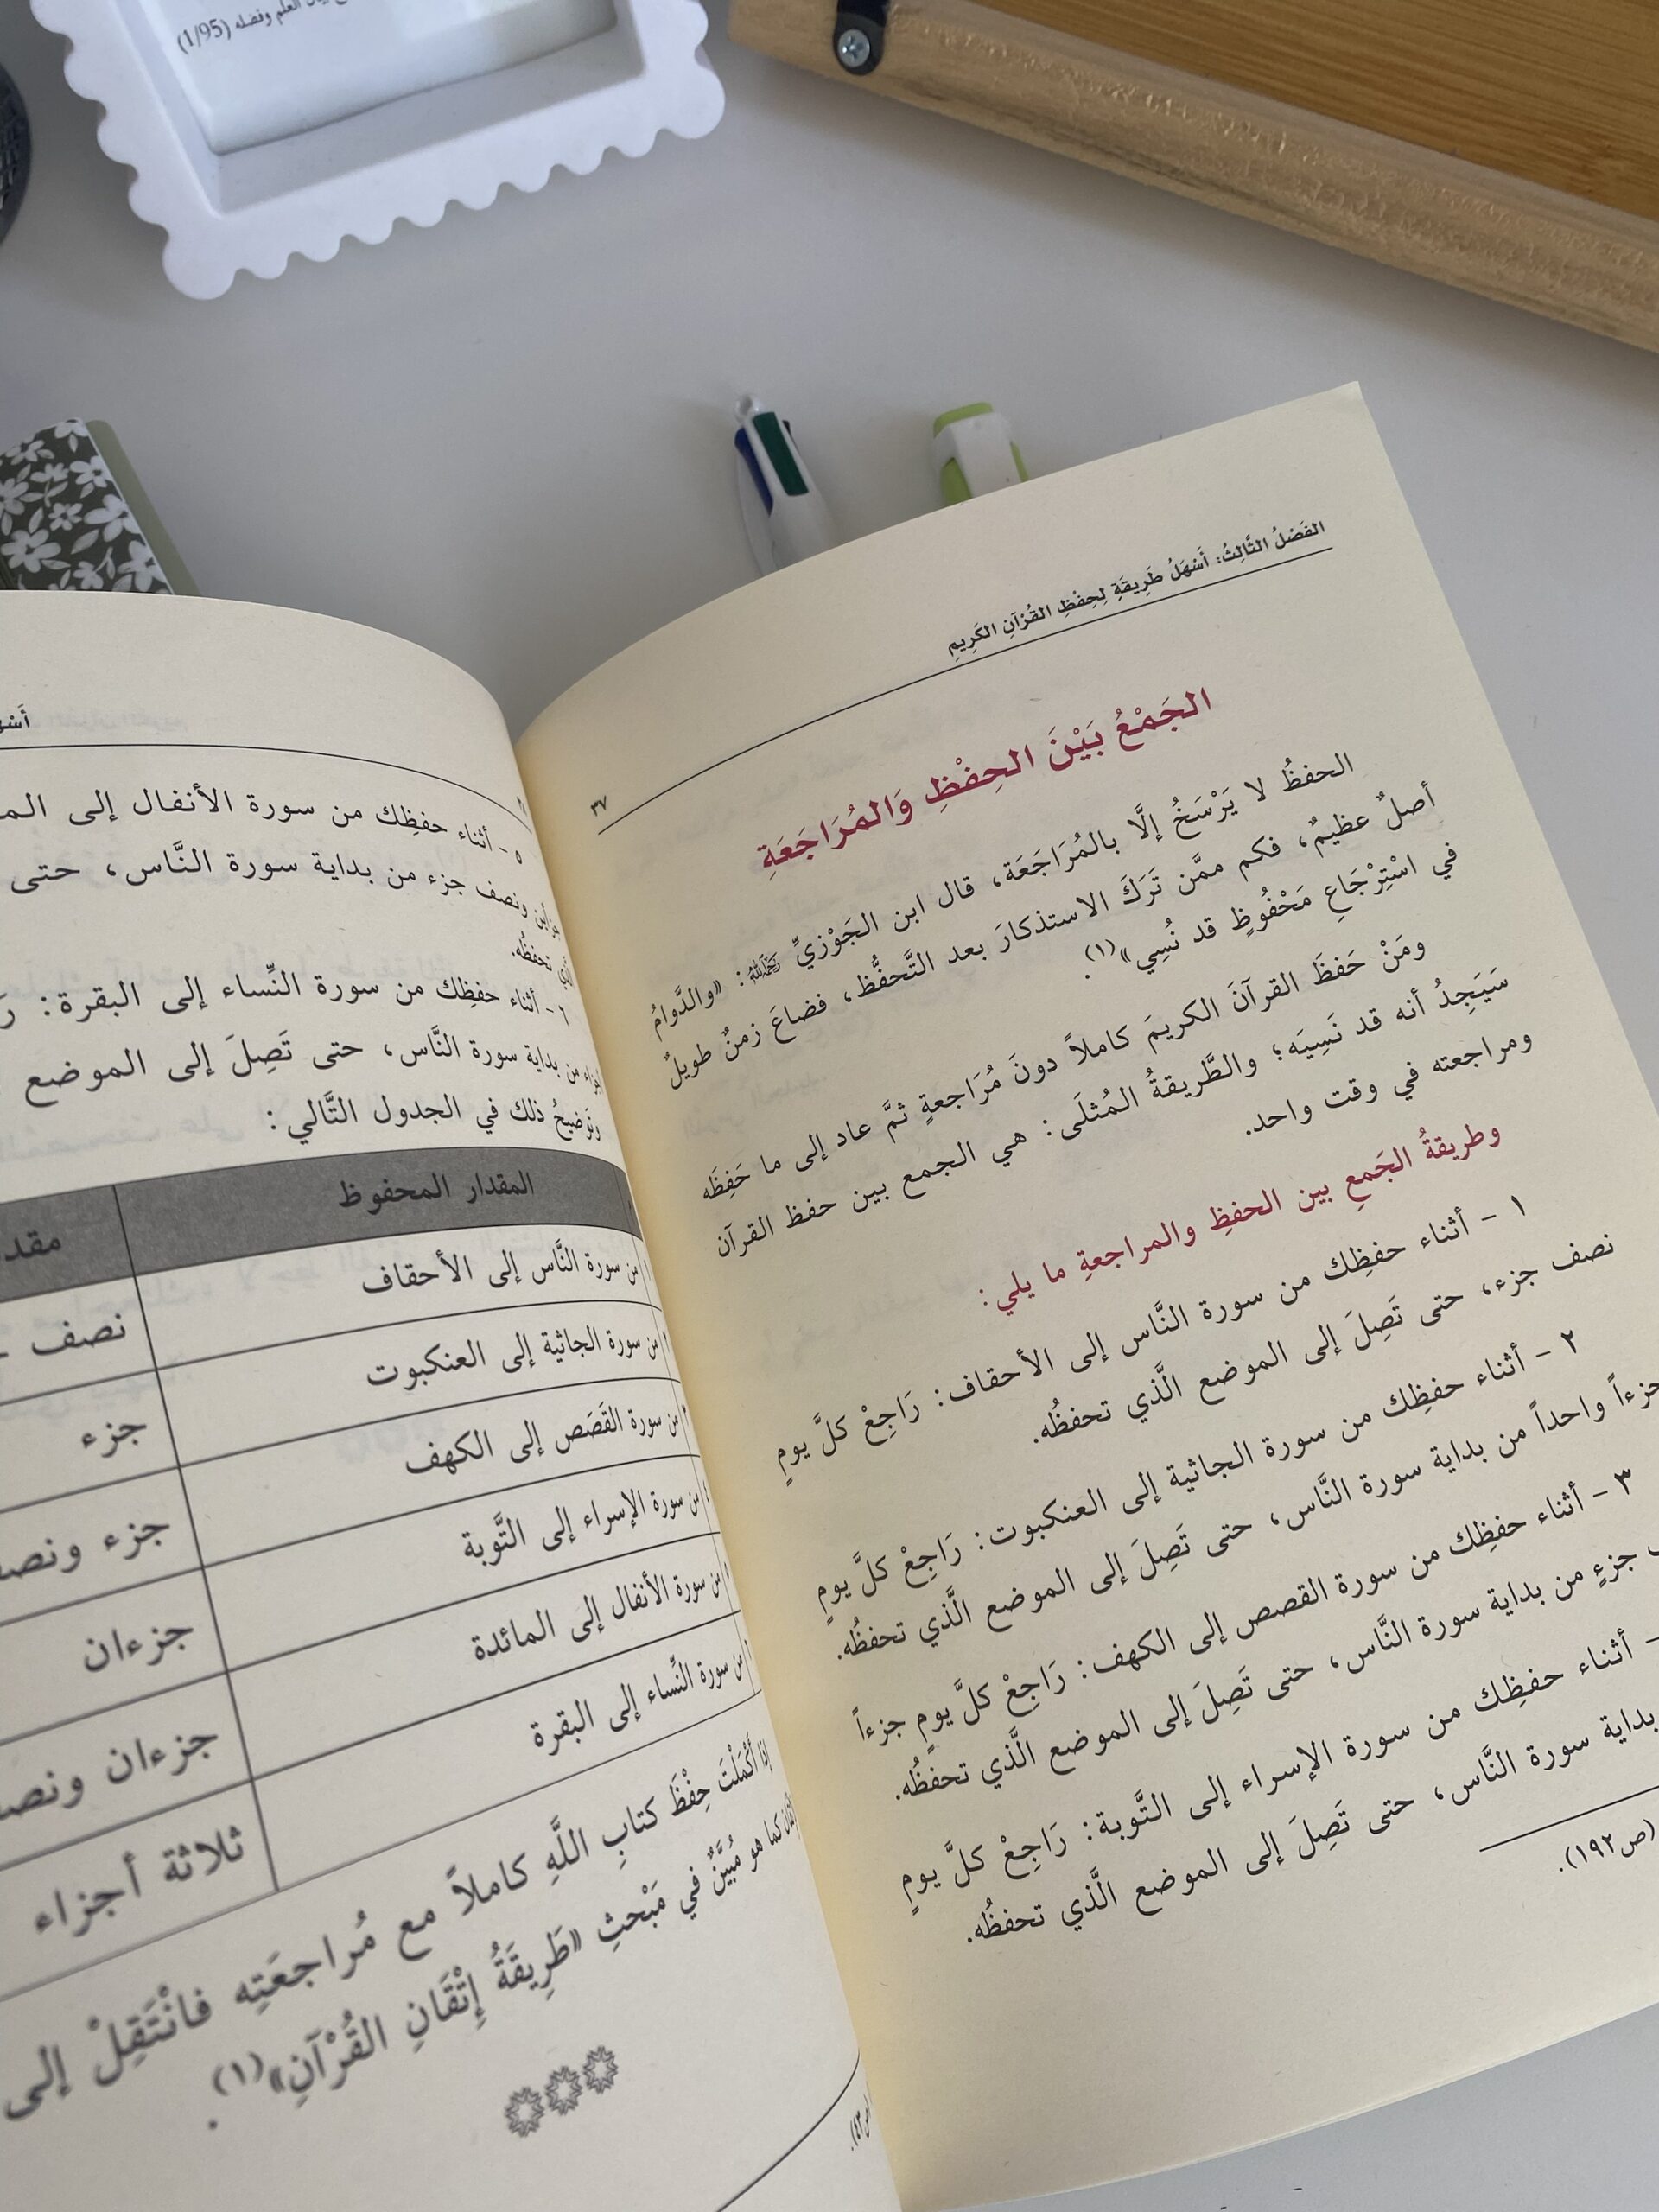 العلم وفضله (1/95)
الفَصْلُ الثَّالِثُ: أَسْهَلُ طَرِيقَةٍ لِحِفْظِ القُرْآنِ الكَرِيمِ
٣٧
الجَمْعُ بَيْنَ الحِفْظِ وَالمُرَاجَعَةِ
الحفظُ لا يَرْسَخُ إلَّا بالمُرَاجَعَة، قال ابن الجَوْزيِّ رَحِمَهُ اللَّهُ: «والدَّوامُ
أصلٌ عظيمٌ، فكم ممَّن تَرَكَ الاستذكارَ بعد التَّحفُّظ، فضاعَ زمنٌ طويلٌ
في اسْتِرْجَاعِ مَحْفُوظٍ قد نُسِي»(١).
ومَنْ حَفظَ القرآنَ الكريمَ كاملاً دونَ مُرَاجعةٍ ثمَّ عاد إلى ما حَفِظَه
سَيَجِدُ أنه قد نَسِيَه؛ والطَّريقةُ المُثلَى: هي الجمع بين حفظ القرآن
ومراجعته في وقت واحد.
وطريقةُ الجَمعِ بين الحفظِ والمراجعةِ ما يلي:
١ - أثناء حفظِك من سورة النَّاس إلى الأحقاف: رَاجِعْ كلَّ يومٍ
نصف جزء، حتى تَصِلَ إلى الموضع الَّذي تحفظُه.
٢ - أثناء حفظِك من سورة الجاثية إلى العنكبوت: رَاجِعْ كلَّ يومٍ
جزءاً واحداً من بداية سورة النَّاس، حتى تَصِلَ إلى الموضع الَّذي تحفظُه.
٣ - أثناء حفظِك من سورة القصص إلى الكهف: رَاجِعْ كلَّ يومٍ جزءاً
جزءٍ من بداية سورة النَّاس، حتى تَصِلَ إلى الموضع الَّذي تحفظُه.
- أثناء حفظِك من سورة الإسراء إلى التَّوبة: رَاجِعْ كلَّ يومٍ
بداية سورة النَّاس، حتى تَصِلَ إلى الموضع الَّذي تحفظُه.
(ص١٩٢).
٥ - أثناء حفظِك من سورة الأنفال إلى
ونصف جزء من بداية سورة النَّاس، حتى
تحفظُه.
٦ - أثناء حفظِك من سورة النِّساء إلى البقرة:
من بداية سورة النَّاس، حتى تَصِلَ إلى الموضع
وتَوضيحُ ذلك في الجدول التَّالي:
المقدار المحفوظ
من سورة النَّاس إلى الأحقاف نصف
من سورة الجاثية إلى العنكبوت جزء
من سورة القَصَص إلى الكهف جزء
من سورة الإسراء إلى التَّوبة جزءان
من سورة الأنفال إلى المائدة جزءان
من سورة النِّساء إلى البقرة ثلاثة أجزاء
إذا أَكْمَلْتَ حِفْظَ كتابِ اللَّهِ كاملاً مع مُراجعَتِه فانْتَقِلْ إلى
كما هو مُبيَّنٌ في مَبْحثِ «طَرِيقَةُ إِتْقَانِ القُرْآنِ»(١).